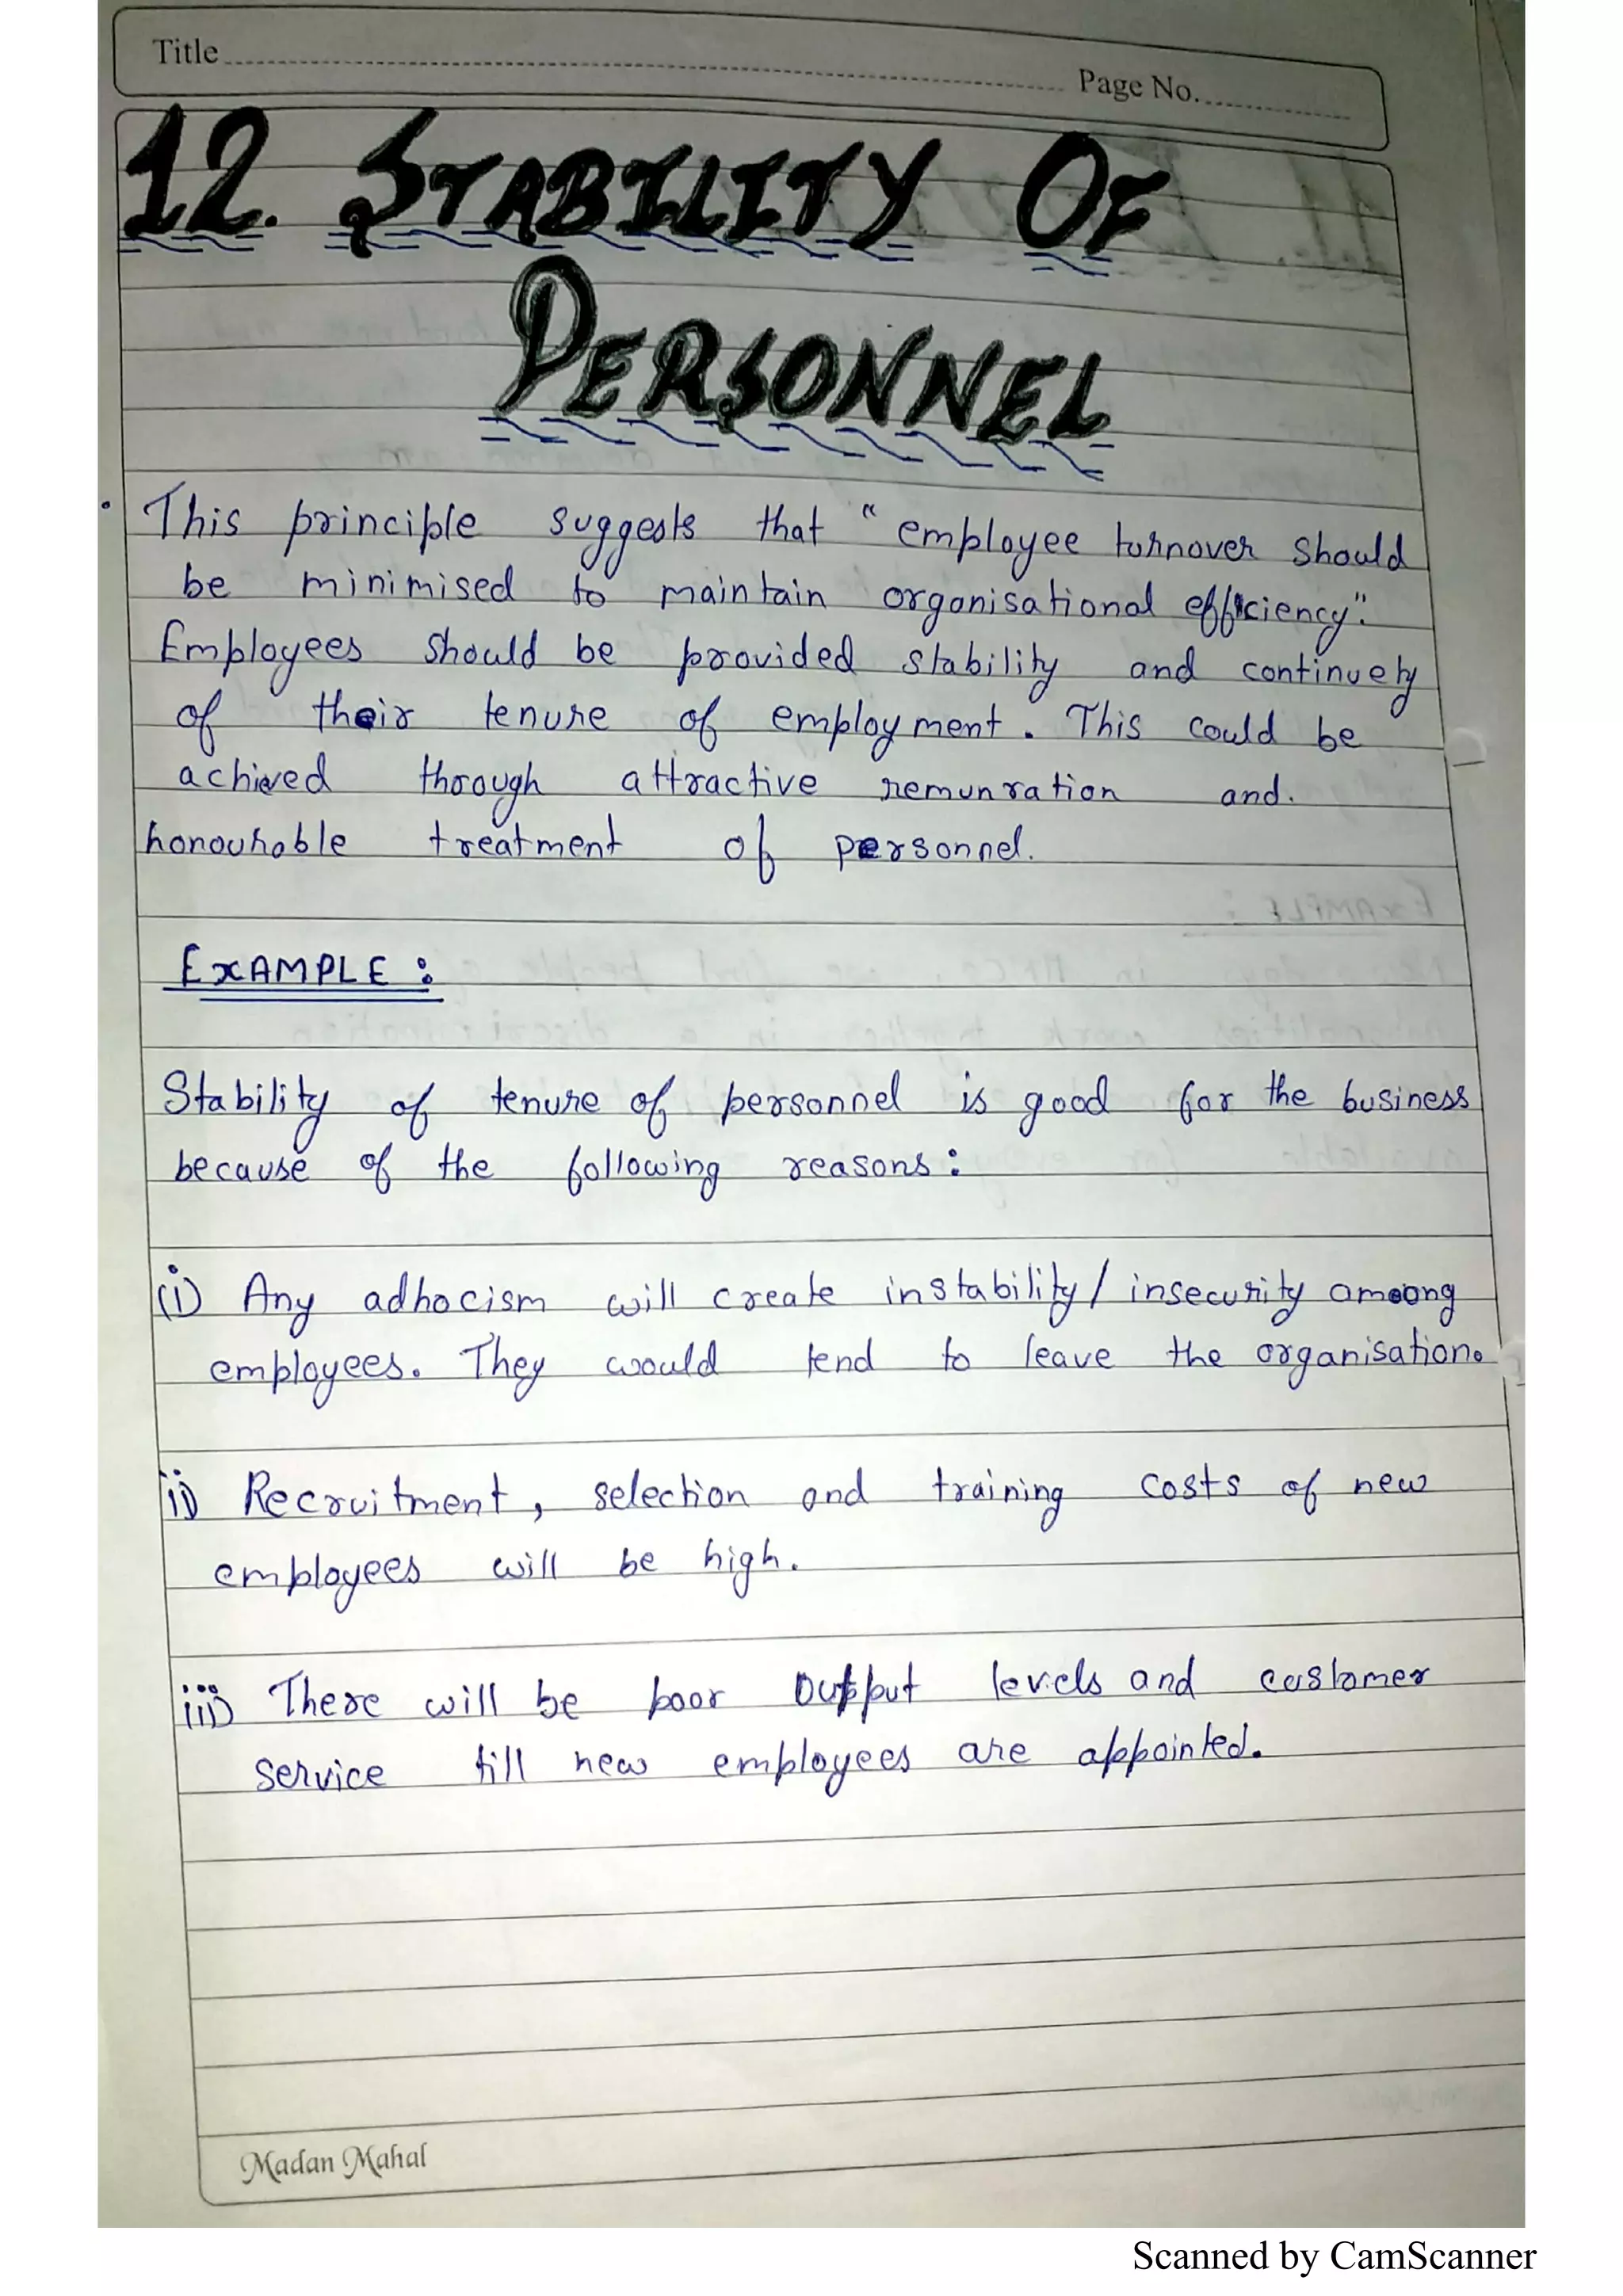 Title
Page No.
12. STABILITY OF
PERSONNEL
• This principle suggests that "employee turnover should
be minimised to maintain organisational efficiency".
Employees should be provided stability and continuety
of their tenure of employment. This could be
achieved through attractive remunration and.
honourable treatment of personnel.
EXAMPLE :
Stability of tenure of personnel is good for the business
because of the following reasons :
(i) Any adhocism will create instability/insecurity among
employees. They would tend to leave the organisation.
ii) Recruitment, selection and training costs of new
employees will be high.
iii) There will be poor output levels and customer
service till new employees are appointed.
Madan Mahal
Scanned by CamScanner